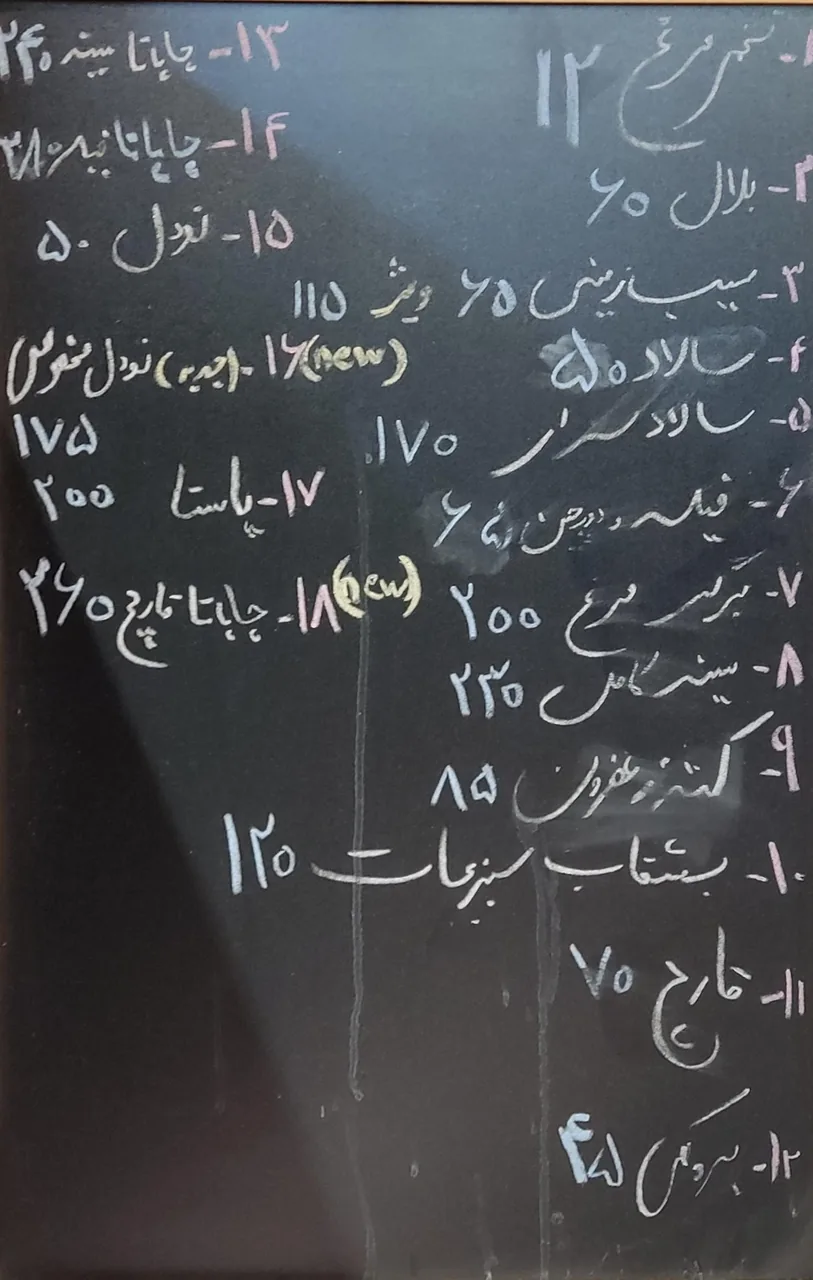 ۱- تخم مرغ ۱۲
۲- بلال ۶۰
۳- سیب زمینی ۶۵ ویژه ۱۱۵
۴- سالاد ۵۰
۵- سالاد سزار ۱۷۰
۶- فیله ۶۵
۷- برگر مرغ ۲۰۰
۸- سینه کامل ۲۳۰
۹- کته زعفرون ۸۵
۱۰- بشقاب سبزیجات ۱۲۰
۱۱- قارچ ۷۰
۱۲- بروکلی ۴۵
۱۳- چاپاتا سینه ۲۴۰
۱۴- چاپاتا فیله ۲۸۰
۱۵- نودل ۵۰
(new) ۱۶- (جدید) نودل مخصوص
۱۷۵
۱۷- پاستا ۲۰۰
(new) ۱۸- چاپاتا قارچ ۲۶۰